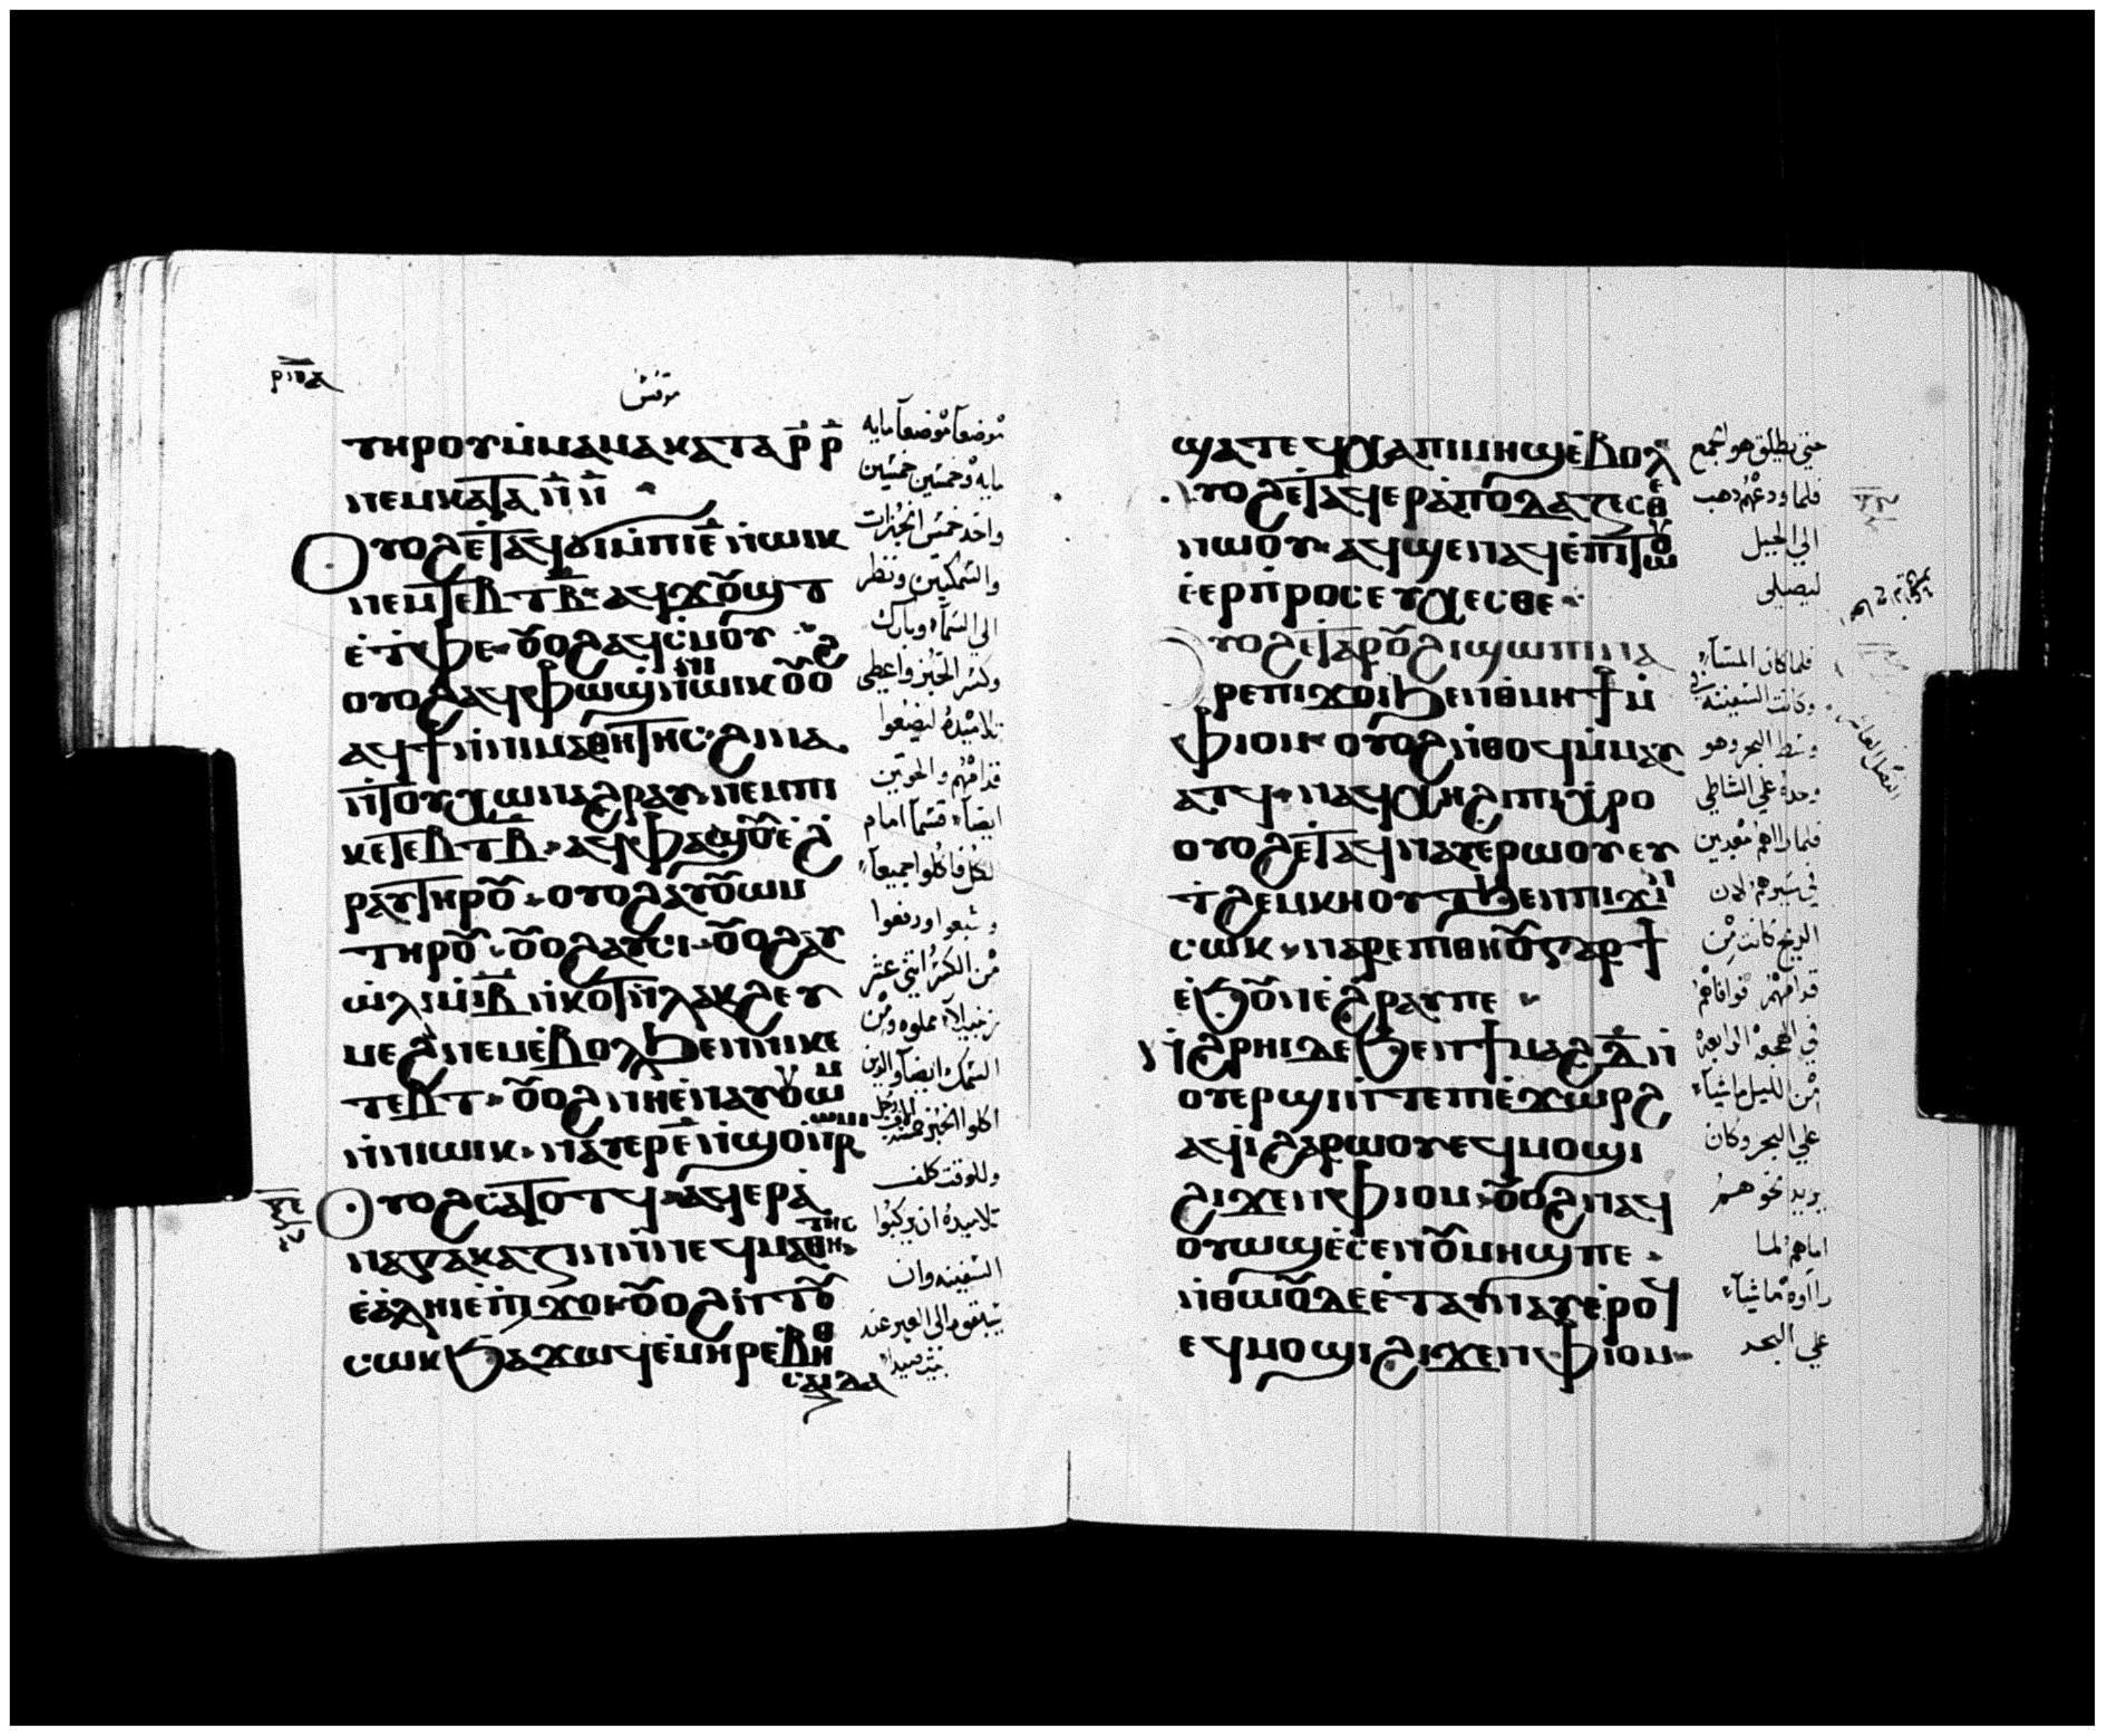 ⲣⲡⲇ
مرقس
ⲧⲏⲣⲟⲩⲙ̀ⲙⲁⲙⲁⲕⲁⲧⲁⲣ̅ⲣ̅
ⲛⲉⲙⲕⲁⲧⲁⲛ̅ⲛ̅
ⲟⲩⲟϩⲉ̀ⲧⲁϥϭⲓⲙ̀ⲡⲓⲉ̅ⲛ̀ⲱⲓⲕ
ⲛⲉⲙⲧⲉⲃⲧⲃ̅ ⲁϥϫⲟ̅ϣⲧ
ⲉ̀ⲧⲫⲉ ⲟ̅ⲟϩⲁϥⲥ̀ⲙⲟⲩ
ⲟⲩⲟϩⲁϥⲫⲱϣⲛ̀ⲛⲓⲱⲓⲕⲟ̅ⲟϩ
ⲁϥϯⲛ̀ⲛⲓⲙⲁⲑⲏⲧⲏⲥ ϩⲓⲛⲁ
ⲛ̀ⲧⲟⲩⲭⲱⲛⲁϩⲣⲁⲩ ⲛⲉⲙⲡⲓ
ⲕⲉⲧⲉⲃⲧⲃ̅ ⲁϥⲫⲁϣⲟ̅ⲉ̀ϩ
ⲣⲁⲩⲧⲏⲣⲟ̅ ⲟⲩⲟϩⲁⲩⲟ̅ⲱⲙ
ⲧⲏⲣⲟ̅ ⲟ̅ⲟϩⲁⲩⲥⲓ ⲟ̅ⲟϩⲁⲩ
ⲱ̀ⲗⲓⲙ̀ⲓ̅ⲃ̅ⲛ̀ⲕⲟⲧⲛ̀ⲗⲁⲕϩⲉⲩ
ⲙⲉϩⲛⲉⲙⲉ̀ⲃⲟⲗϧⲉⲛⲛⲓⲕⲉ
ⲧⲉⲃⲧ ⲟ̅ⲟϩⲛⲏⲉ̀ⲛⲁⲩⲟ̅ⲱⲙ
ⲛ̀ⲛⲓⲱⲓⲕ ⲛⲁⲩⲉⲣⲉ̅ⲛ̀ϣⲟⲛ̀ⲣⲱⲙⲓ
ⲟⲩⲟϩⲥⲁⲧⲟⲧϥ ⲁϥⲉⲣⲁ̀
ⲛⲁⲅⲕⲁⲍⲓⲛ̀ⲛⲉϥⲙⲁⲑⲏⲧⲏⲥ
ⲉ̀ⲁ̀ⲗⲏⲓⲉ̀ⲡⲓϫⲟⲓ ⲟ̅ⲟϩⲛ̀ⲧⲟ̅
ⲥⲱⲕϧⲁϫⲱϥⲉ̀ⲙⲏⲣⲉ̀ⲃⲏⲑ
ⲥⲁⲓⲇⲁ
موضعا موضعا مايه
مايه وخمسين خمسين
واخذ خمس الخبزات
والسمكتين ونظر
الي السمآء وبارك
وكسر الخبز واعطي
تلاميذه ليضعوا
قدامهم والحوتين
ايضآ قسمآ امام
الكل فاكلوا جميعآ
وشبعوا ورفعوا
من الكسر اثني عشر
زنبيلآ مملوه ومن
السمك ايضآ والذين
اكلوا الخبز خمسة الاف رجل
وللوقت كلف
تلاميذه ان يركبوا
السفينه وان
يسبقوه الي العبر عند
بيت صيدا
ϣⲁⲧⲉϥⲭⲁⲡⲓⲙⲏϣⲉ̀ⲃⲟⲗ
ⲟⲩⲟϩⲉ̀ⲧⲁϥⲉⲣⲁ̀ⲡⲟⲇⲁⲍⲉⲥⲑⲉ
ⲛⲱⲟⲩ ⲁϥϣⲉⲛⲁϥⲉ̀ⲡⲓⲧⲱⲟⲩ
ⲉ̀ⲉⲣⲡ̀ⲣⲟⲥⲉⲩⲭⲉⲥⲑⲉ
ⲟⲩⲟϩⲉ̀ⲧⲁⲣⲟ̅ϩⲓϣⲱⲡⲓⲛⲁ
ⲣⲉⲡⲓϫⲟⲓϧⲉⲛⲑ̀ⲙⲏϯⲙ̀
ⲫⲓⲟⲙ ⲟⲩⲟϩⲛ̀ⲑⲟϥⲙ̀ⲙⲁⲩ
ⲁⲧϥ ⲛⲁϥⲭⲏϩⲓⲡⲓⲭⲣⲟ
ⲟⲩⲟϩⲉ̀ⲧⲁϥⲛⲁⲩⲉⲣⲱⲟⲩⲉⲩ
ⲧ̀ϩⲉⲙⲕⲏⲟⲩⲧϧⲉⲛⲡϫⲓⲛ
ⲥⲱⲕ ⲛⲁⲣⲉⲡⲓⲑⲏⲟ̅ⲅⲁⲣϯ
ⲉ̀ϧⲟ̅ⲛⲉ̀ϩⲣⲁⲩⲡⲉ
ⲛ̀ϩⲣⲏⲓⲇⲉϧⲉⲛϯⲙⲁϩⲇ̅ⲛ̀
ⲟⲩⲉⲣϣⲓⲛ̀ⲧⲉⲡⲓⲉ̀ϫⲱⲣϩ
ⲁϥⲓ̀ϩⲁⲣⲱⲟⲩⲉϥⲙⲟϣⲓ
ϩⲓϫⲉⲛⲫⲓⲟⲙ ⲟ̅ⲟϩⲛⲁϥ
ⲟⲩⲱϣⲉ̀ⲥⲉⲛⲟ̅ⲙⲏϣⲡⲉ
ⲛ̀ⲑⲱⲟ̅ⲇⲉⲉ̀ⲧⲁⲩⲛⲁⲩⲉ̀ⲣⲟϥ
ⲉϥⲙⲟϣⲓϩⲓϫⲉⲛⲫⲓⲟⲙ
حتي يطلق هو الجمع
فلما ودعهم ذهب
الي الجبل
ليصلي
فلما كان المسآء
وكانت السفينه في
وسط البحر وهو
وحده علي الشاطي
فلما راهم معذبين
في سيرهم لان
الريح كانت من
قدامهم فوافاهم
في الهجعه الرابعه
من الليل ماشيآ
علي البحر وكان
يريد نحوهم
اماهم لما
راوه ماشيآ
علي البحر